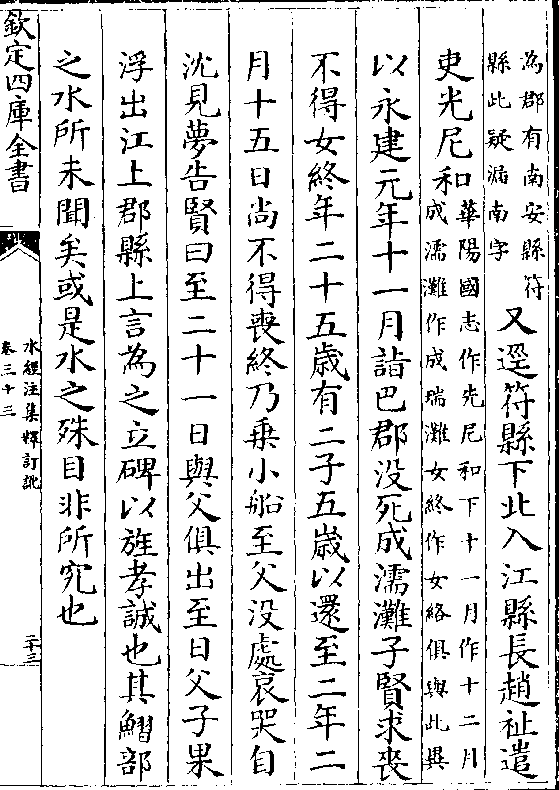 為郡有南安縣符
縣此疑漏南字
又逕符縣下北入江縣長趙祉遣
吏光尼和
華陽國志作先尼和下十一月作十二月
成濡灘作成瑞灘女終作女絡俱與此異
以永建元年十一月詣巴郡没死成濡灘子賢求喪
不得女終年二十五歲有二子五歲以還至二年二
月十五日尚不得喪終乃乗小船至父没處哀哭自
沈見夢告賢曰至二十一日與父俱出至日父子果
浮出江上郡縣上言為之立碑以旌孝誠也其鰼部
之水所未聞矣或是水之殊目非所究也
欽定四庫全書
水經注集釋訂訛
卷三十三
二十三